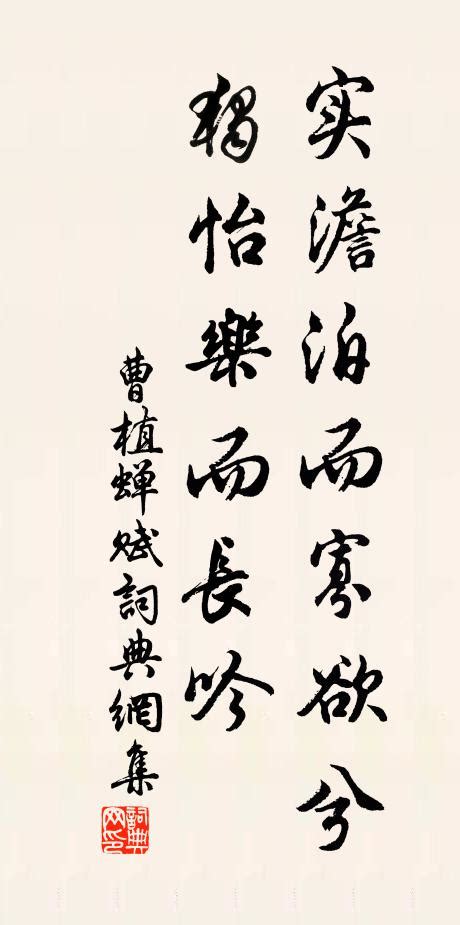 实澹泊而寡欲兮
獨怡樂而長吟
曹植蝉赋詞典網集
詞典網印